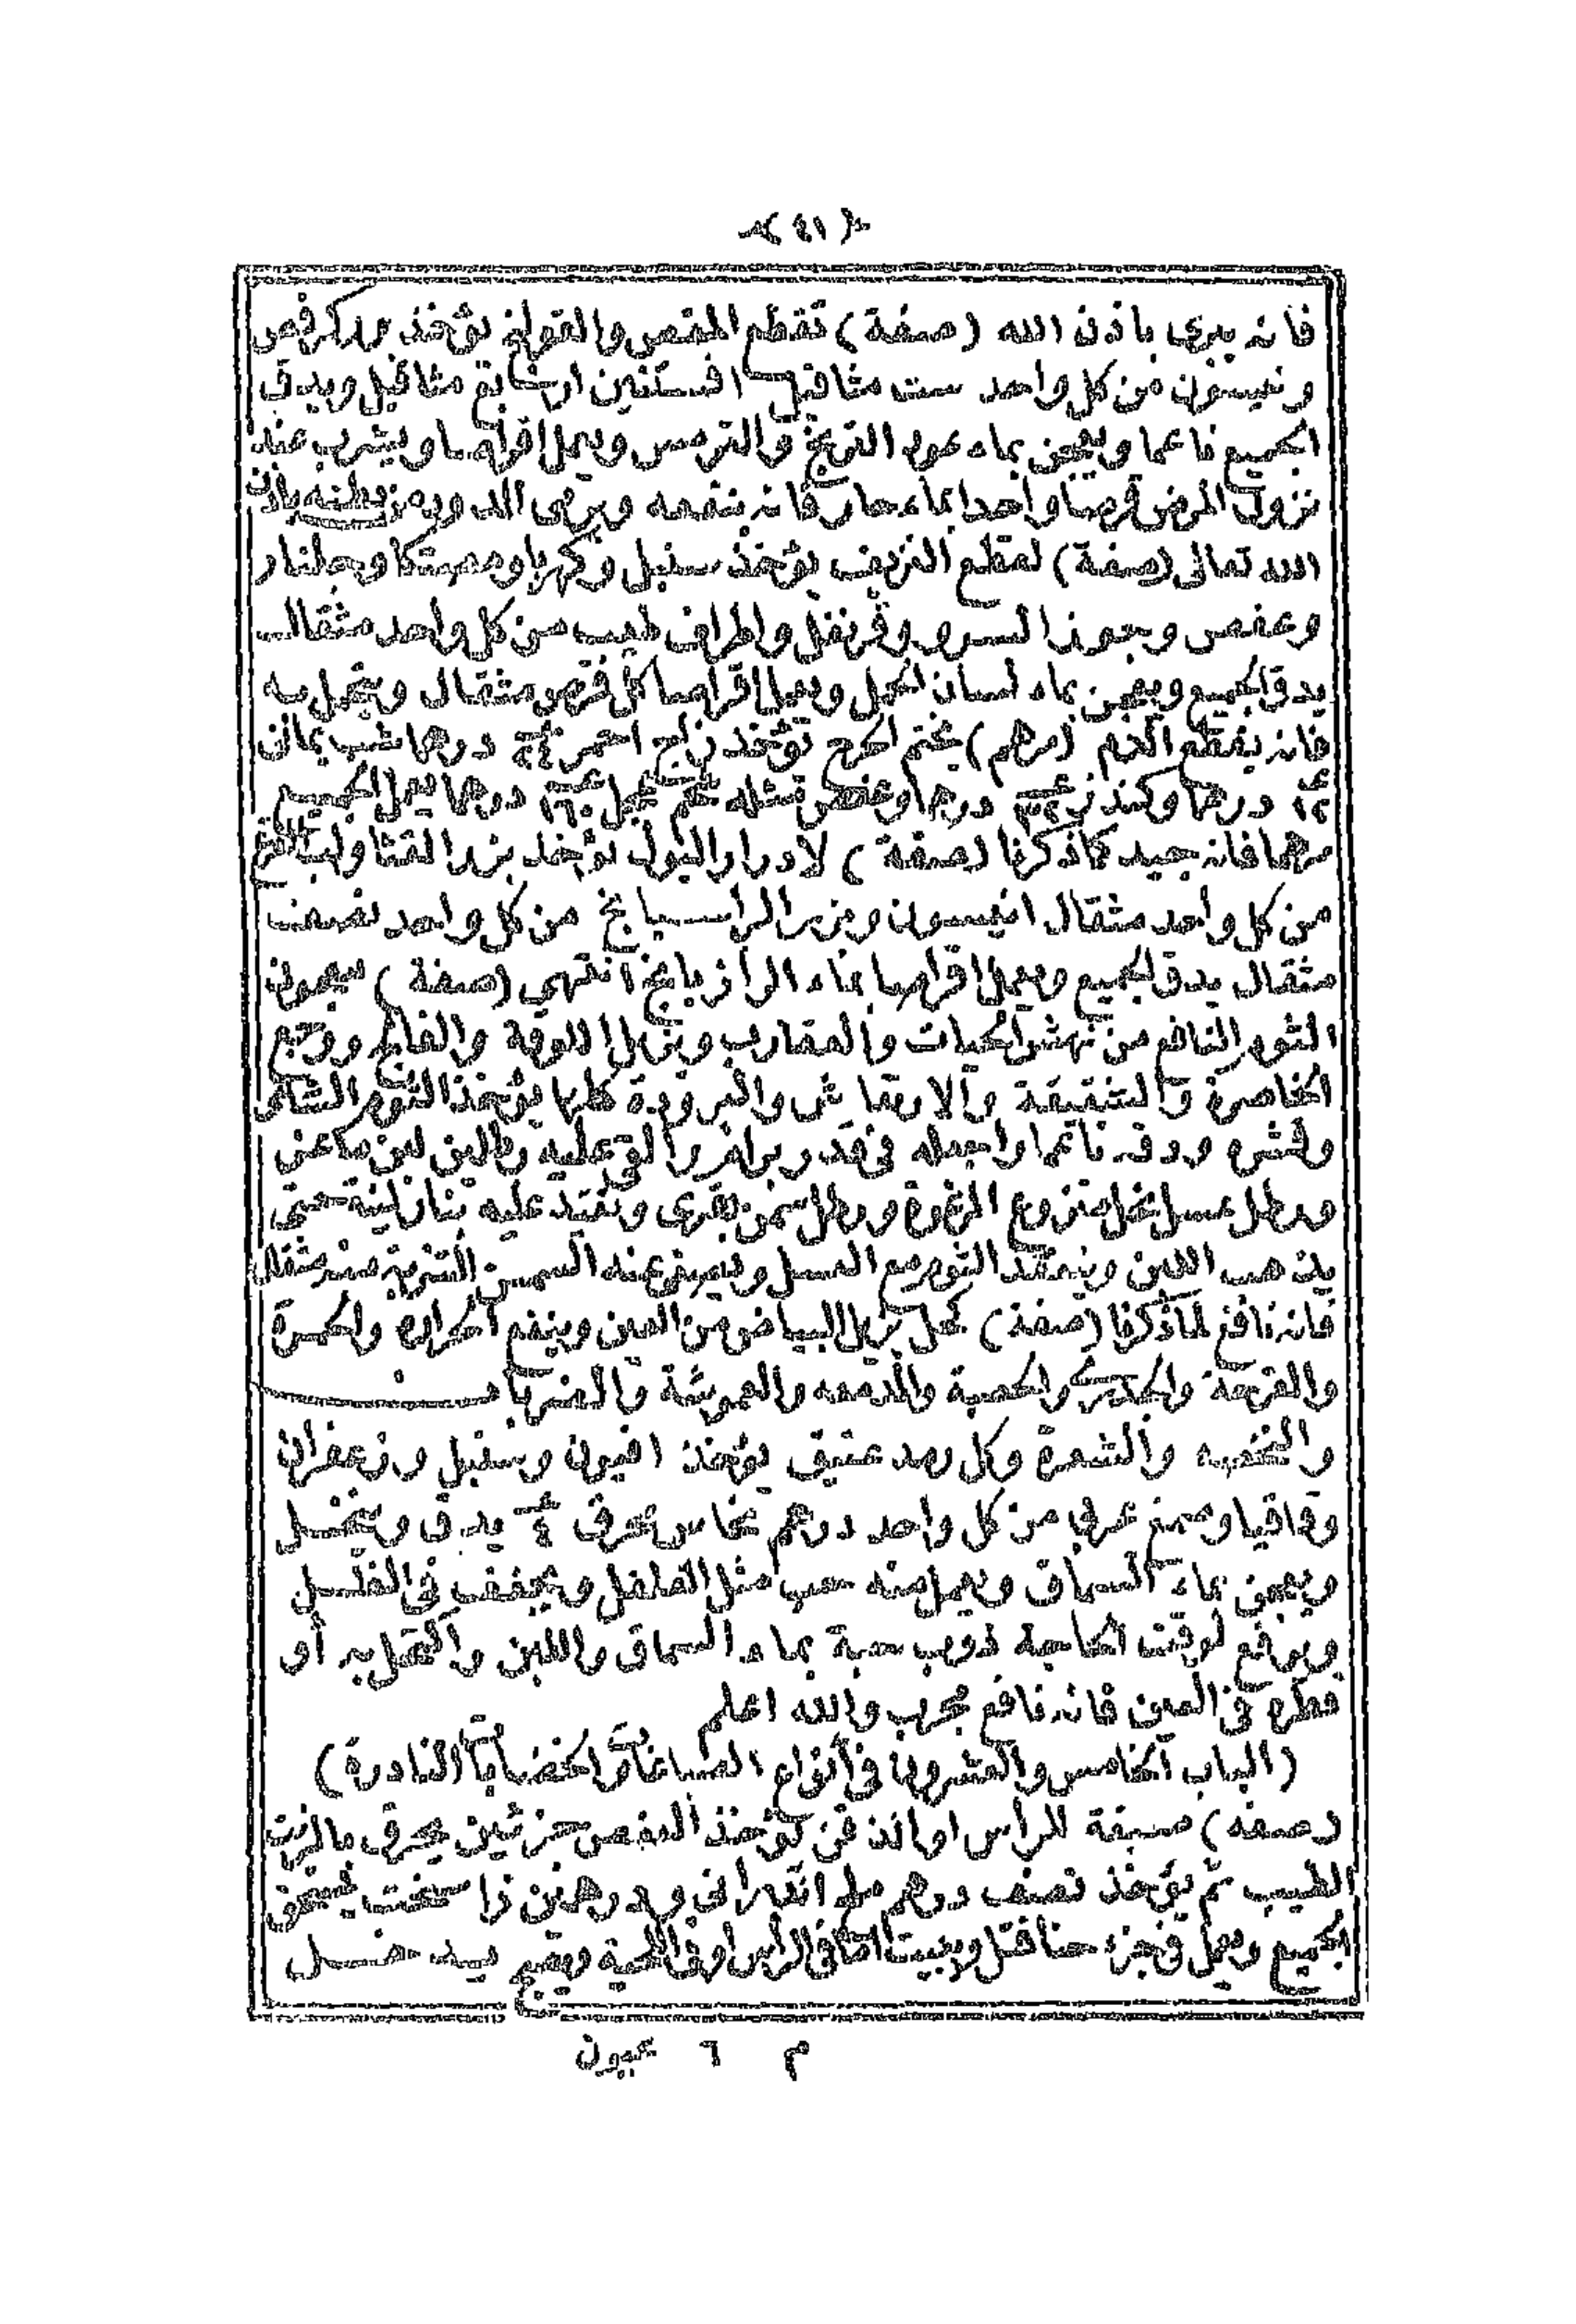 (٤١)
فانه يبرى باذن الله (صفة) تقطع المغص والقولنج يؤخذ بزر كرفص
ونيسون من كل واحد ست مثاقيل افسنتين اربعة مثاقيل ويدق
الجميع ناعما ويعجن بماء عود والترمس ويعمل اقراصا ويشرب عند
نزول المرض قرصا واحدا بماء حار فانه ينفعه ويرمى الدود من بطنه باذن
الله تعالى (صفة) لقطع النزيف يؤخذ سنبل وكهربا ومصتكا وجلنار
وعفص وجوز السرو وقرنفل واطراف طيب من كل واحد مثقال
يدق الجميع ويعجن بماء لسان الحمل ويعمل اقراصا كل قرص مثقال ويتحمل به
فانه يقطع الدم (مرهم) يختم الجرح تؤخذ زاج احمر درهما شب يمانى
درهما وكندر درهما وعفص مثله شحم عجل درهما يعمل الجميع
مرهما فانه جيد كما ذكرنا (صفة) لادرار البول يؤخذ بزر القثا ولب القرع
من كل واحد مثقال انيسون وبزر الرازيانج من كل واحد نصف
مثقال يدق الجميع ويعمل اقراصا بماء الرازيانج انتهى (صفة) معجون
الثوم النافع من نهش الحيات والعقارب ويزيل اللوقة والفالج ووجع
الخاصرة والشقيقة والارتعاش والبرودة كلها يؤخذ الثوم الشامى
وقشره ودقه ناعما واجعله فى قدر برام والق عليه رطلين لبن ماعز
ورطل عسل نحل منزوع الرغوة ورطل سمن بقرى وتقيد عليه بنار لينة حتى
يذهب اللبن وينعقد الثوم مع العسل ويصرف عنه السمن الشربة منه مثقال
فانه نافع لما ذكرنا (صفة) كحل يزيل البياض من العين وينفع الحرارة والحمرة
والقرحة والجدرى والحصبة والدمعه والعموشة والضربات
والشعرة وكل رمد عتيق يؤخذ افيون وسنبل وزعفران
وقاقيا وصمغ عربى من كل واحد درهم نحاس محرق يدق وينخل
ويعجن بماء السماق ويعمل منه حب مثل الفلفل ويجفف فى الظل
ويرفع لوقت الحاجة ذوب حبة بماء السماق واللبن واكتحل به او
قطره فى العين فانه نافع مجرب والله اعلم
(الباب الخامس والعشرون فى أنواع الصباغات والخضابات النادرة)
(صفه) صبغة للراس او الذقن يؤخذ العفص جزئين يحرق بالزيت
الطيب ثم يؤخذ نصف درهم ملح اندرانى ودرهمين زاسخت يسحق
الجميع ويعمل فى جزء حنا قتل ويبيت اما فى الراس او فى اللحية ويصبح يغسل
م ٦ عيون